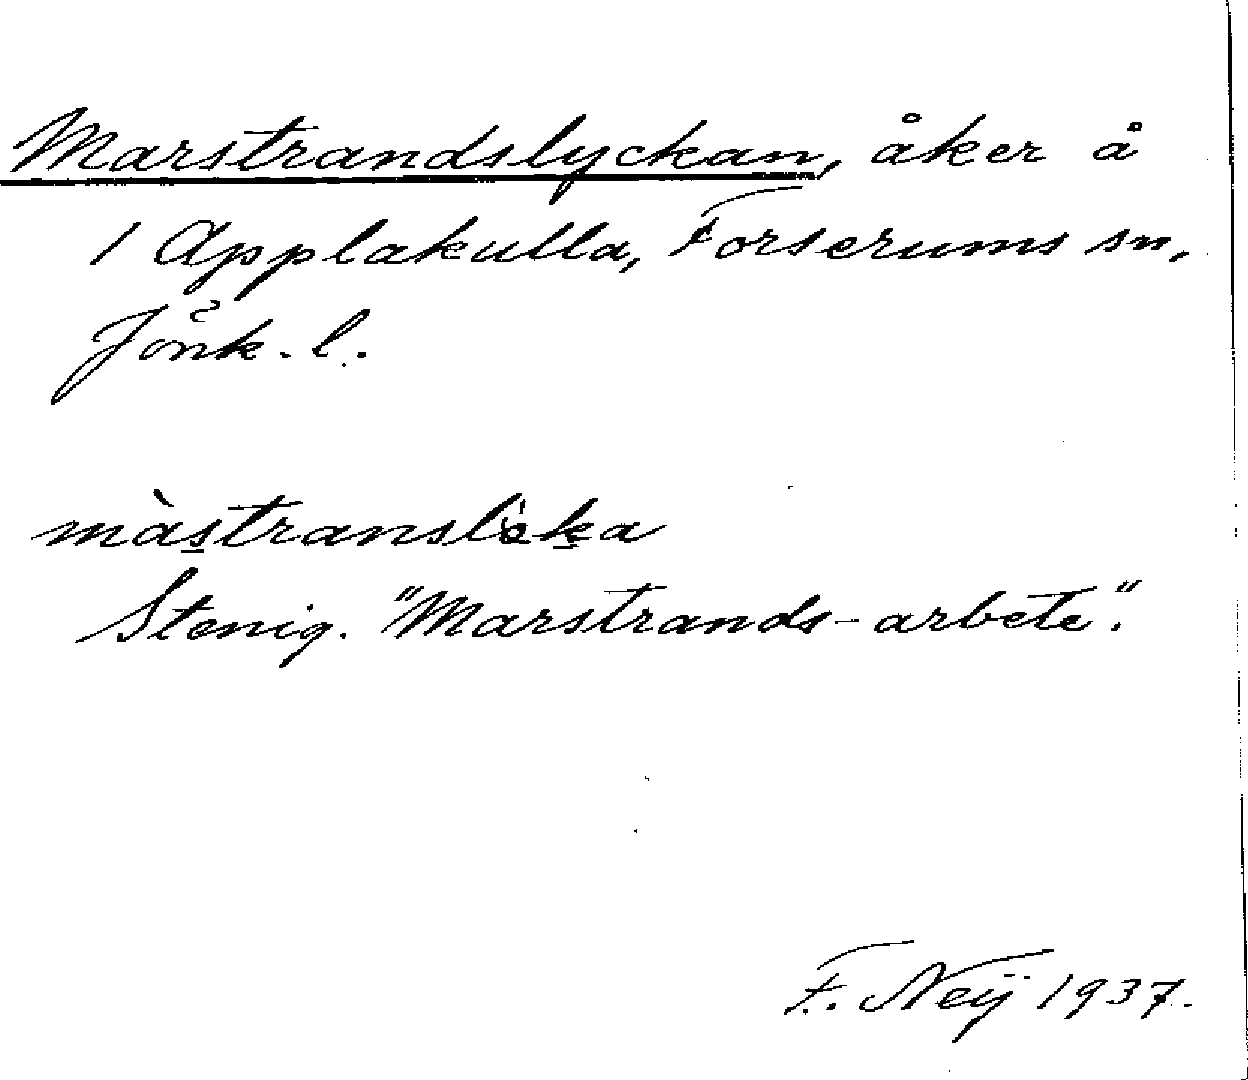 Marstrandslyckan, åker å
1 Applakulla, Forserums sn,
Jönk. l.
màstranslöka
Stenig. "Marstrands-arbete".
F. Neij 1937.